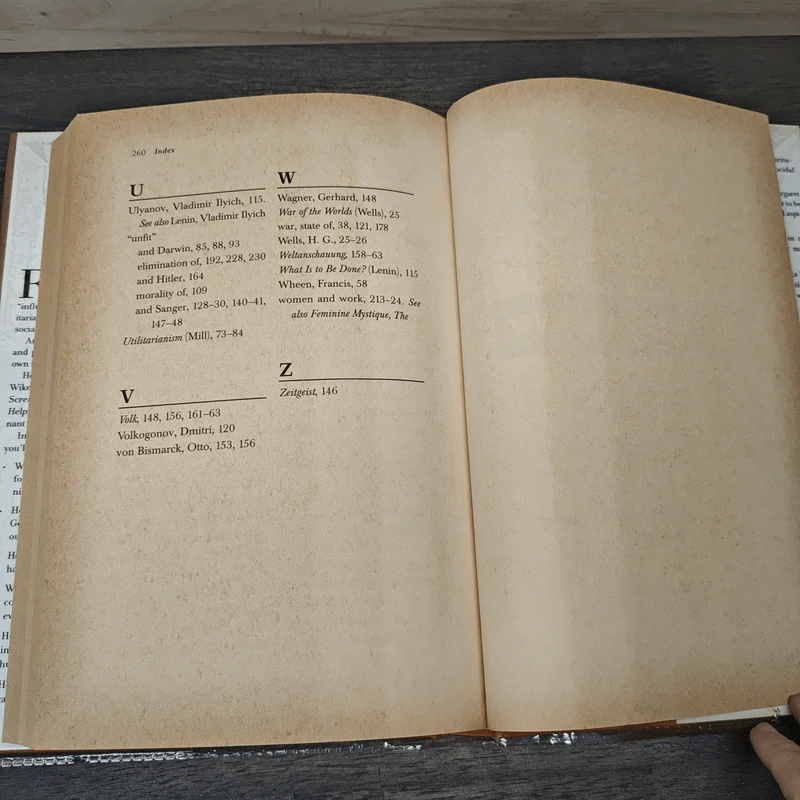 260 Index
U
Ulyanov, Vladimir Ilyich, 115.
See also Lenin, Vladimir Ilyich
"unfit"
and Darwin, 85, 88, 93
elimination of, 192, 228, 230
and Hitler, 164
morality of, 109
and Sanger, 128–30, 140–41,
147–48
Utilitarianism (Mill), 73–84
V
Volk, 148, 156, 161–63
Volkogonov, Dmitri, 120
von Bismarck, Otto, 153, 156
W
Wagner, Gerhard, 148
War of the Worlds (Wells), 25
war, state of, 38, 121, 178
Wells, H. G., 25–26
Weltanschauung, 158–63
What Is to Be Done? (Lenin), 115
Wheen, Francis, 58
women and work, 213–24. See
also Feminine Mystique, The
Z
Zeitgeist, 146